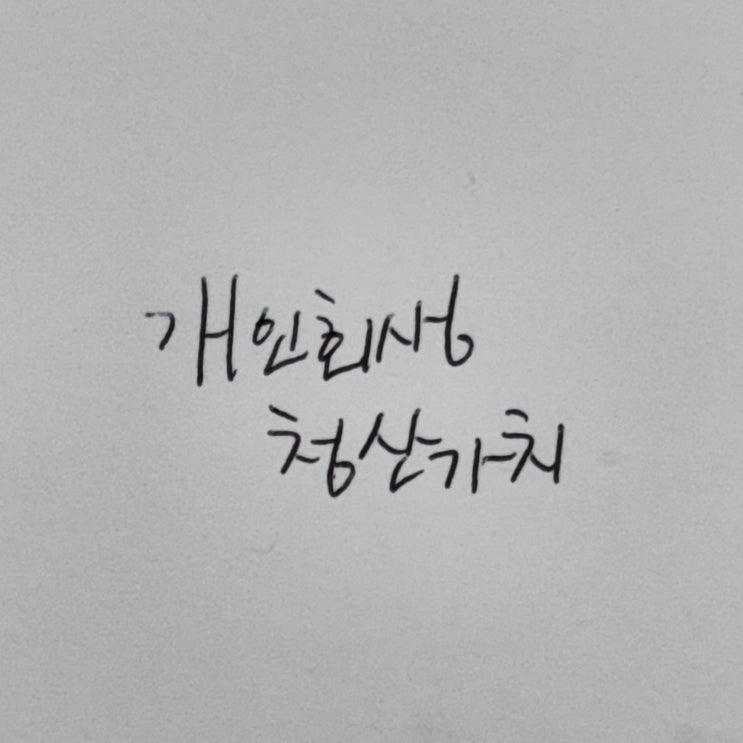 개인회생
청산가치